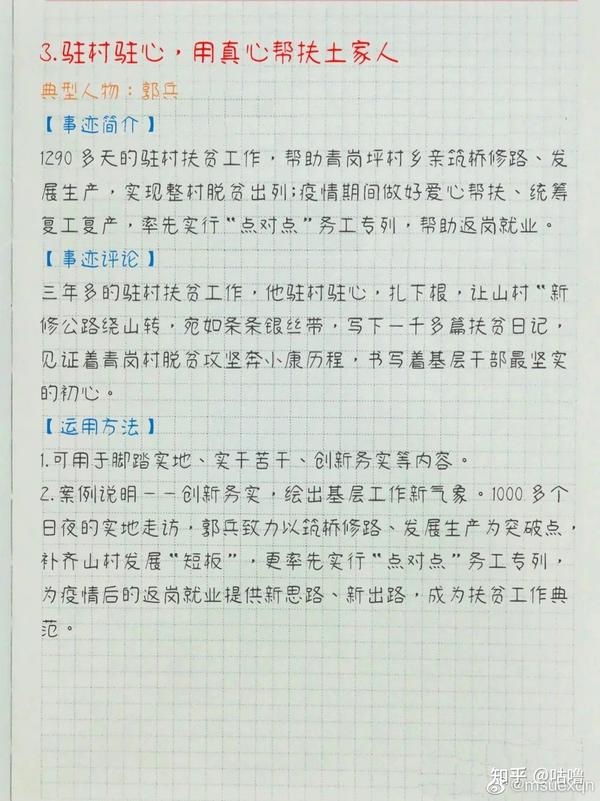 3.驻村驻心，用真心帮扶土家人
典型人物：郭兵
【事迹简介】
1290多天的驻村扶贫工作，帮助青岗坪村乡亲筑桥修路、发
展生产，实现整村脱贫出列;疫情期间做好爱心帮扶、统筹
复工复产，率先实行“点对点”务工专列，帮助返岗就业。
【事迹评论】
三年多的驻村扶贫工作，他驻村驻心，扎下根，让山村“新
修公路绕山转，宛如条条银丝带，写下一千多篇扶贫日记，
见证着青岗村脱贫攻坚奔小康历程，书写着基层干部最坚实
的初心。
【运用方法】
1.可用于脚踏实地、实干苦干、创新务实等内容。
2.案例说明——创新务实，绘出基层工作新气象。1000多个
日夜的实地走访，郭兵致力以筑桥修路、发展生产为突破点，
补齐山村发展“短板”，更率先实行“点对点”务工专列，
为疫情后的返岗就业提供新思路、新出路，成为扶贫工作典
范。
知乎 @咕噜